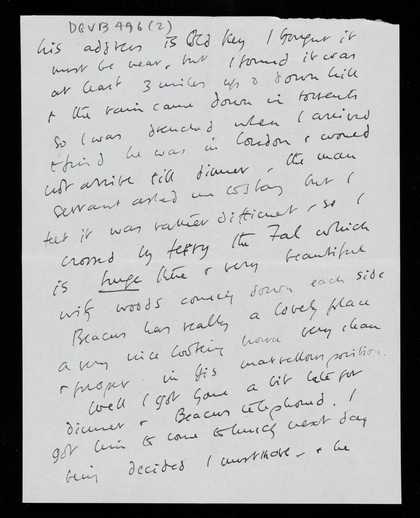 DGVB 496 (2)
his address is Old Key I thought it
must be near, but I found it was
at least 3 miles up & down hill
& the rain came down in torrents
so I was drenched when I arrived
& find he was in London & would
not arrive till dinner, the man
servant asked me to stay but I
felt it was rather difficult, so I
crossed by ferry the Fal which
is huge there & very beautiful
with woods coming down each side
Beacus has really a lovely place
a very nice looking house very clean
& proper in his marvellous position.
Well I got home a bit late for
dinner & Beacus telephoned. I
got him to come to lunch next day
being decided I must & he